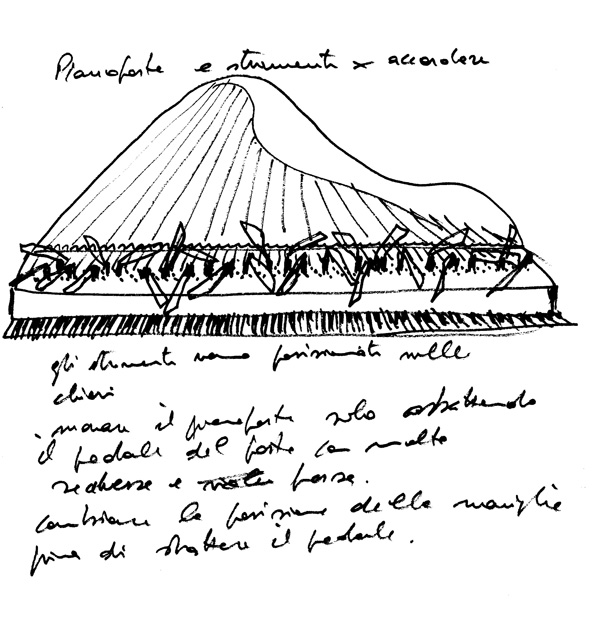 Pianoforte e strumenti x accordare
gli strumenti vanno posizionati sulle
chiavi
. suonare il pianoforte solo sbattendo
il pedale del forte con molta
secchezza e forza.
cambiare la posizione delle maniglie
prima di sbattere il pedale.